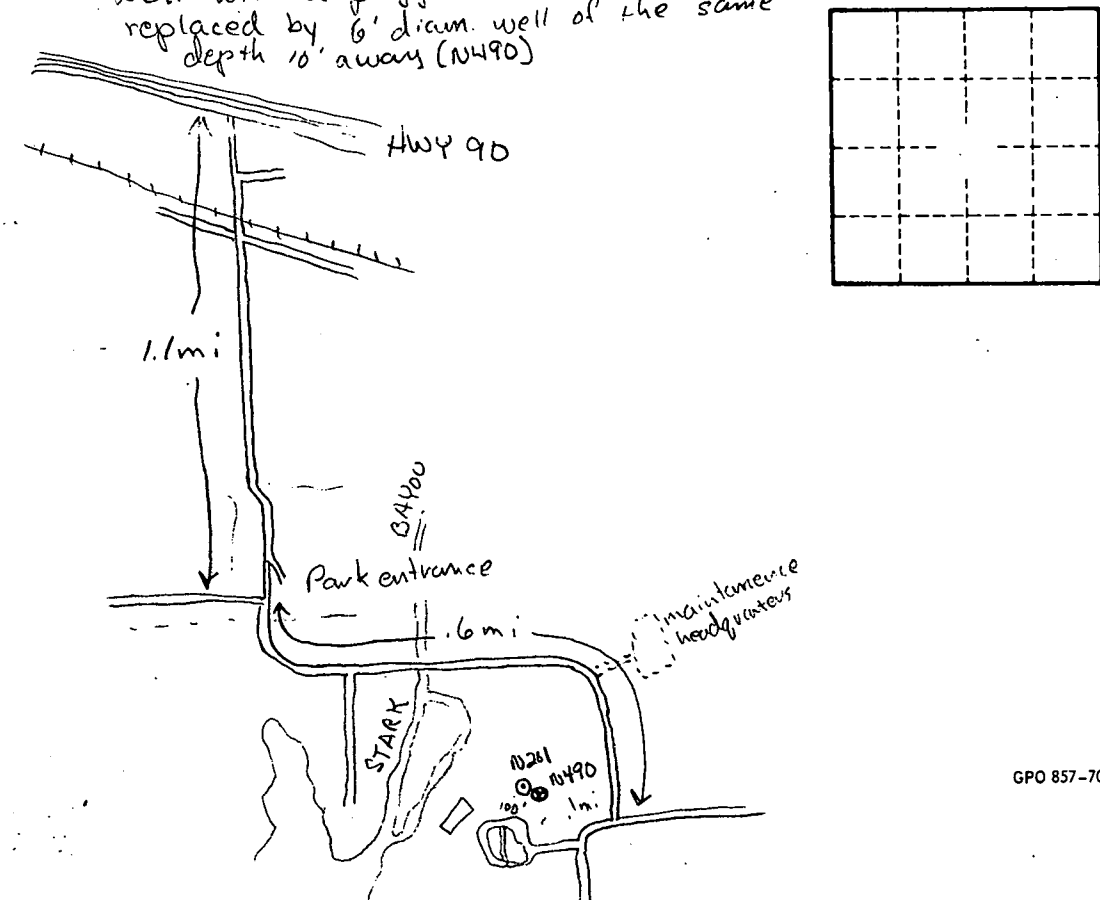 replaced by 6' diam. well of the same
depth 10' away (N490)
HWY 90
1.1mi
BAYOU
Park entrance
maintamence
headquaters
.6mi
STARK
N261
N490
100'
.1mi
GPO 857-70